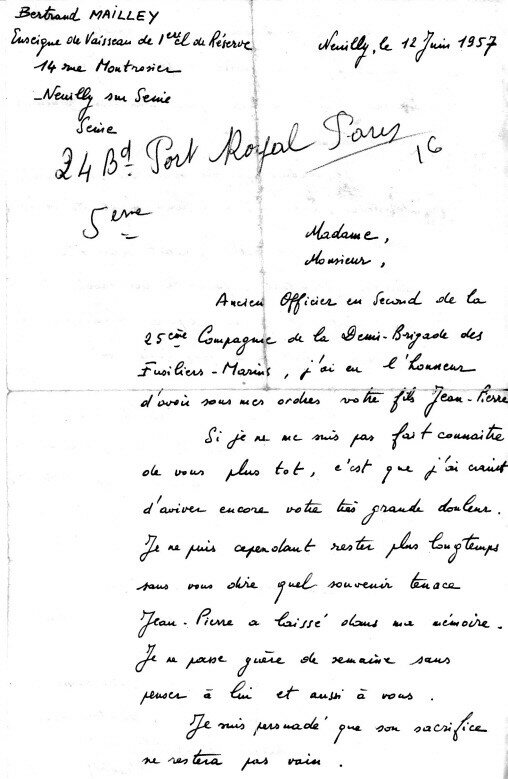 Bertrand MAILLEY
Enseigne de Vaisseau de 1ère cl de Réserve
14 rue Montrosier
Neuilly sur Seine
Seine
Neuilly, le 12 Juin 1957
24 Bd Port Royal Paris
16
5eme
Madame,
Monsieur,
Ancien Officier en Second de la
25ème Compagnie de la Demi-Brigade des
Fusiliers-Marins, j'ai eu l'honneur
d'avoir sous mes ordres votre fils Jean-Pierre
Si je ne me suis pas fait connaitre
de vous plus tot, c'est que j'ai craint
d'aviver encore votre très grande douleur.
Je ne puis cependant rester plus longtemps
sans vous dire quel souvenir tenace
Jean-Pierre a laissé dans ma mémoire.
Je ne passe guère de semaine sans
penser à lui et aussi à vous.
Je suis persuadé que son sacrifice
ne restera pas vain.